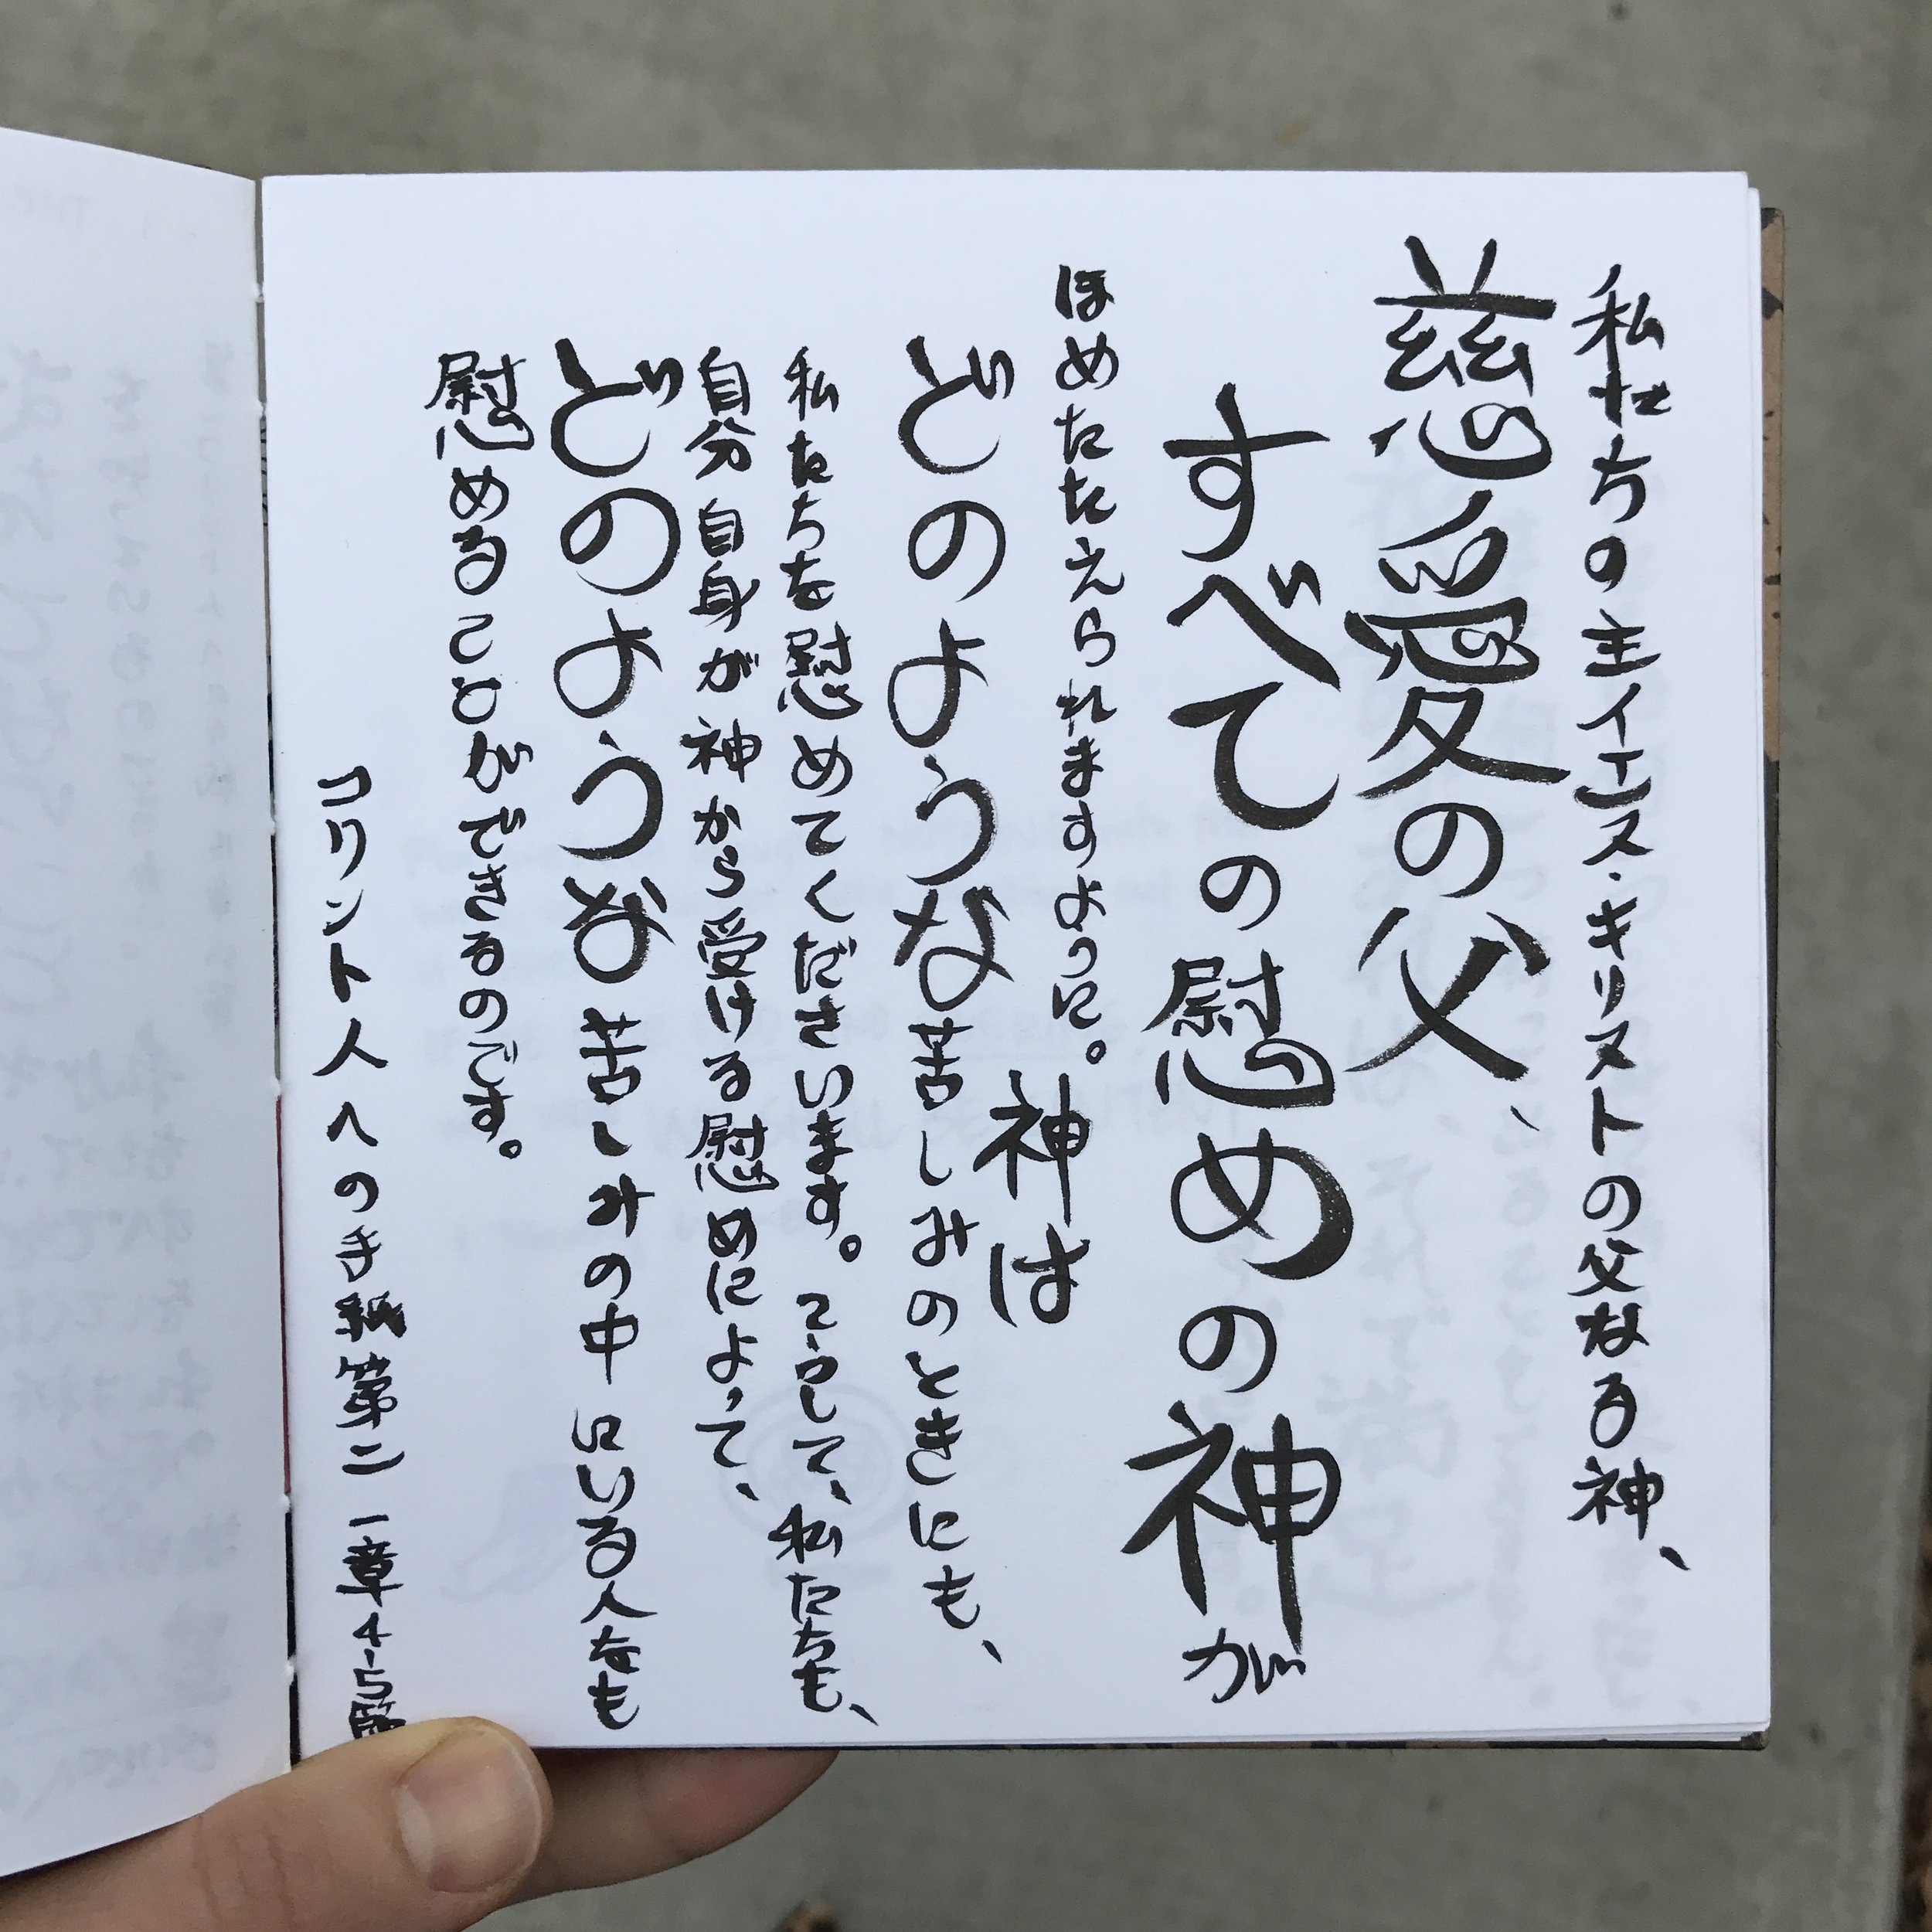 私たちの主イエス・キリストの父なる神、
慈愛の父、
すべての慰めの神が
ほめたたえられますように。
神は
どのような苦しみのときにも、
私たちを慰めてくださいます。こうして、私たちも、
自分自身が神から受ける慰めによって、
どのような苦しみの中にいる人をも
慰めることができるのです。
コリント人への手紙第二 一章4-5節